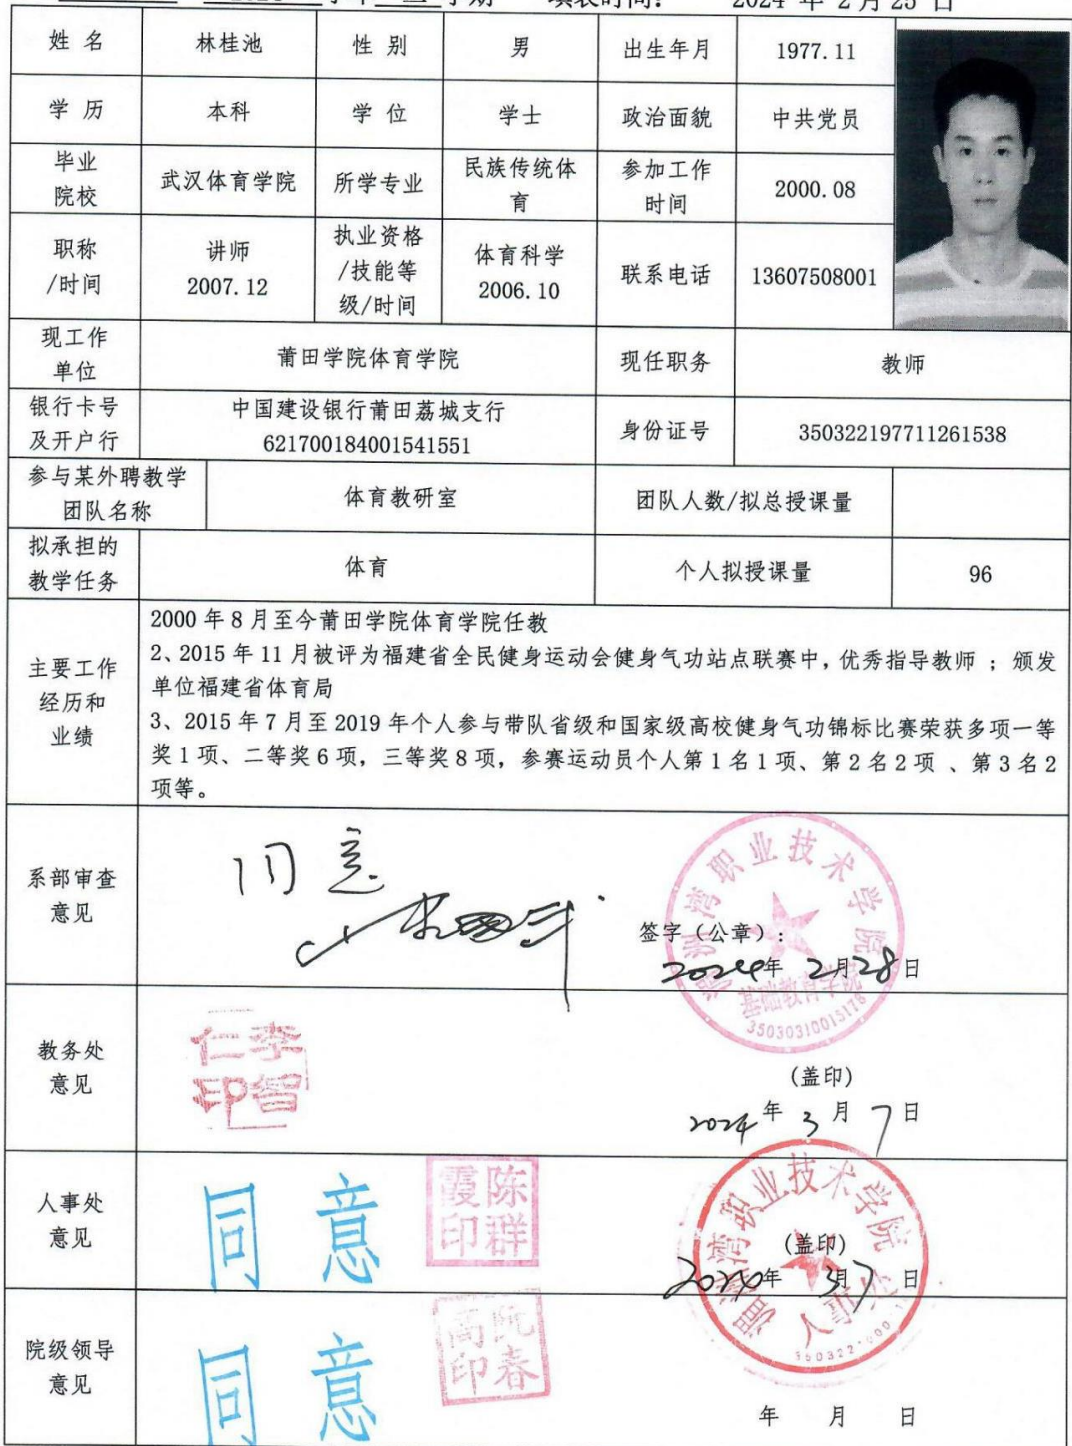 学期 填表时间： 2024 年 2月 25 日
姓 名 林桂池 性 别 男 出生年月 1977.11
学 历 本科 学 位 学士 政治面貌 中共党员
毕业
院校 武汉体育学院 所学专业 民族传统体
育 参加工作
时间 2000.08
职称
/时间 讲师
2007.12 执业资格
/技能等
级/时间 体育科学
2006.10 联系电话 13607508001
现工作
单位 莆田学院体育学院 现任职务 教师
银行卡号
及开户行 中国建设银行莆田荔城支行
621700184001541551 身份证号 350322197711261538
参与某外聘教学
团队名称 体育教研室 团队人数/拟总授课量
拟承担的
教学任务 体育 个人拟授课量 96
主要工作
经历和
业绩
2000 年 8 月至今莆田学院体育学院任教
2、2015 年 11 月被评为福建省全民健身运动会健身气功站点联赛中，优秀指导教师 ；颁发
单位福建省体育局
3、2015 年 7 月至 2019 年个人参与带队省级和国家级高校健身气功锦标比赛荣获多项一等
奖 1 项、二等奖 6 项，三等奖 8 项，参赛运动员个人第 1 名 1 项、第 2 名 2 项 、第 3 名 2
项等。
系部审查
意见
同意
签字（公章）：
2024年 2月28日
湄洲湾职业技术学院
基础教育学院
35030310015178
教务处
意见
李智
仁印
(盖印)
2024 年 3 月 7 日
人事处
意见
同 意
陈群
霞印
湄洲湾职业技术学院
人事处
(盖印)
年 3月7 日
院级领导
意见
同 意
阮春
高印
年 月 日